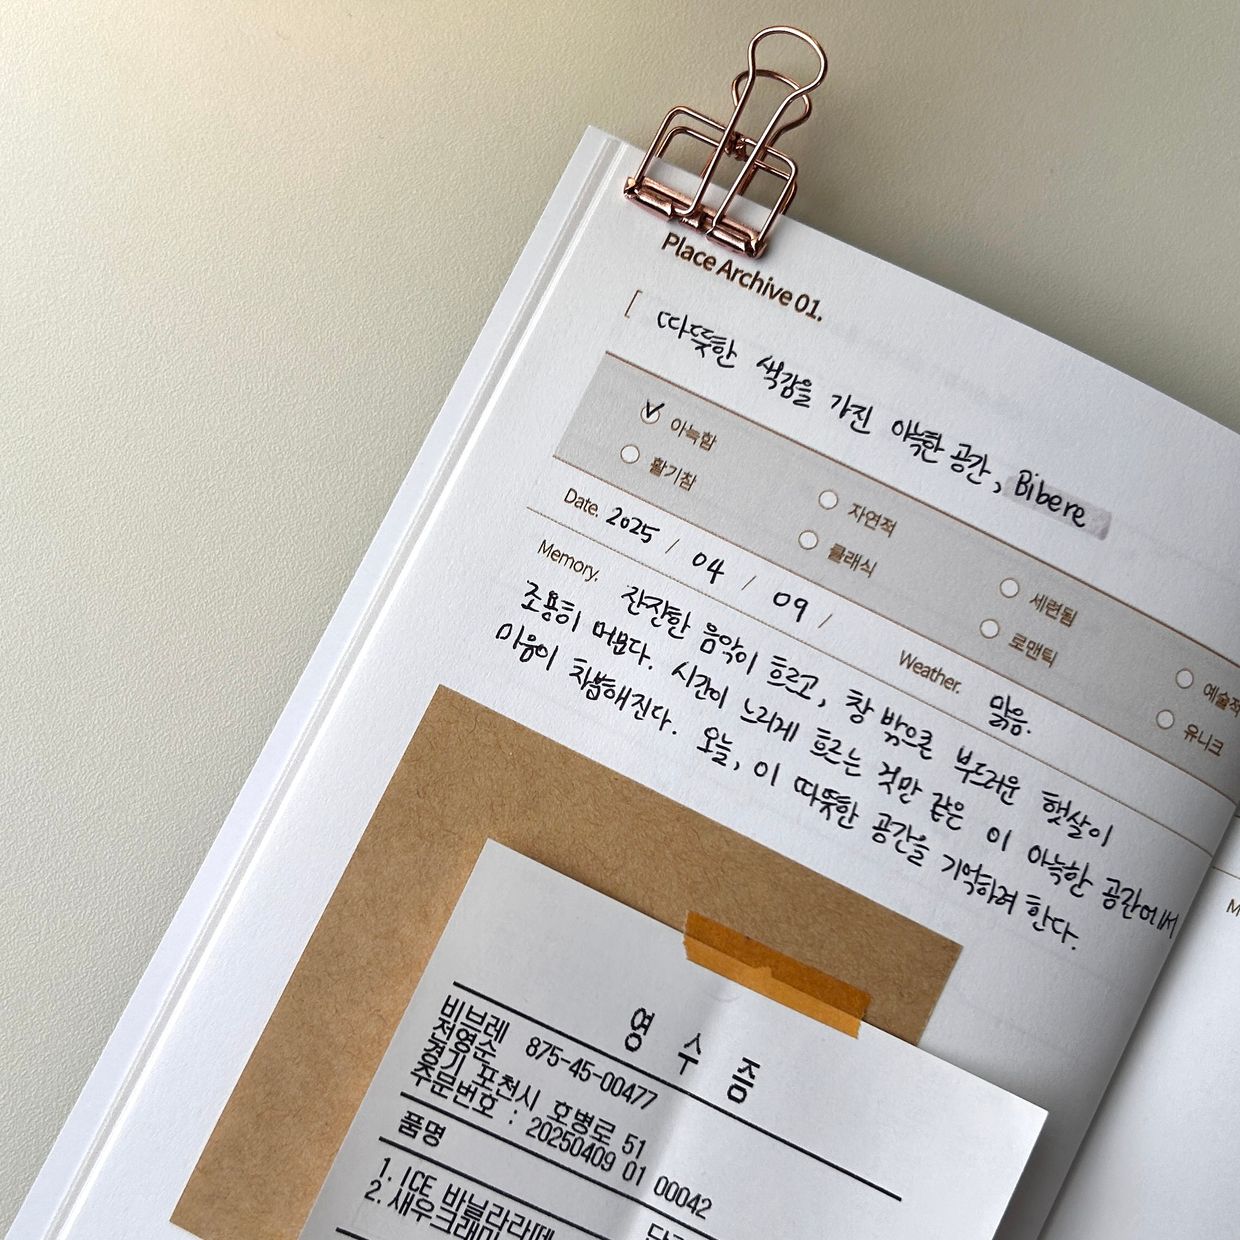 Place Archive 01.
따뜻한 색감을 가진 아늑한 공간, Bibere
아늑함 자연적 세련됨 예술적
활기참 클래식 로맨틱 유니크
Date. 2025 / 04 / 09 / Weather. 맑음.
Memory. 잔잔한 음악이 흐르고, 창 밖으론 부드러운 햇살이
조용히 머문다. 시간이 느리게 흐르는 것만 같은 이 아늑한 공간에서
마음이 차분해진다. 오늘, 이 따뜻한 공간을 기억하려 한다.
영 수 증
비브레 875-45-00477
전영순
경기 포천시 호병로 51
주문번호 : 20250409 01 00042
품명
1. ICE 바닐라라떼
2. 새우크래미